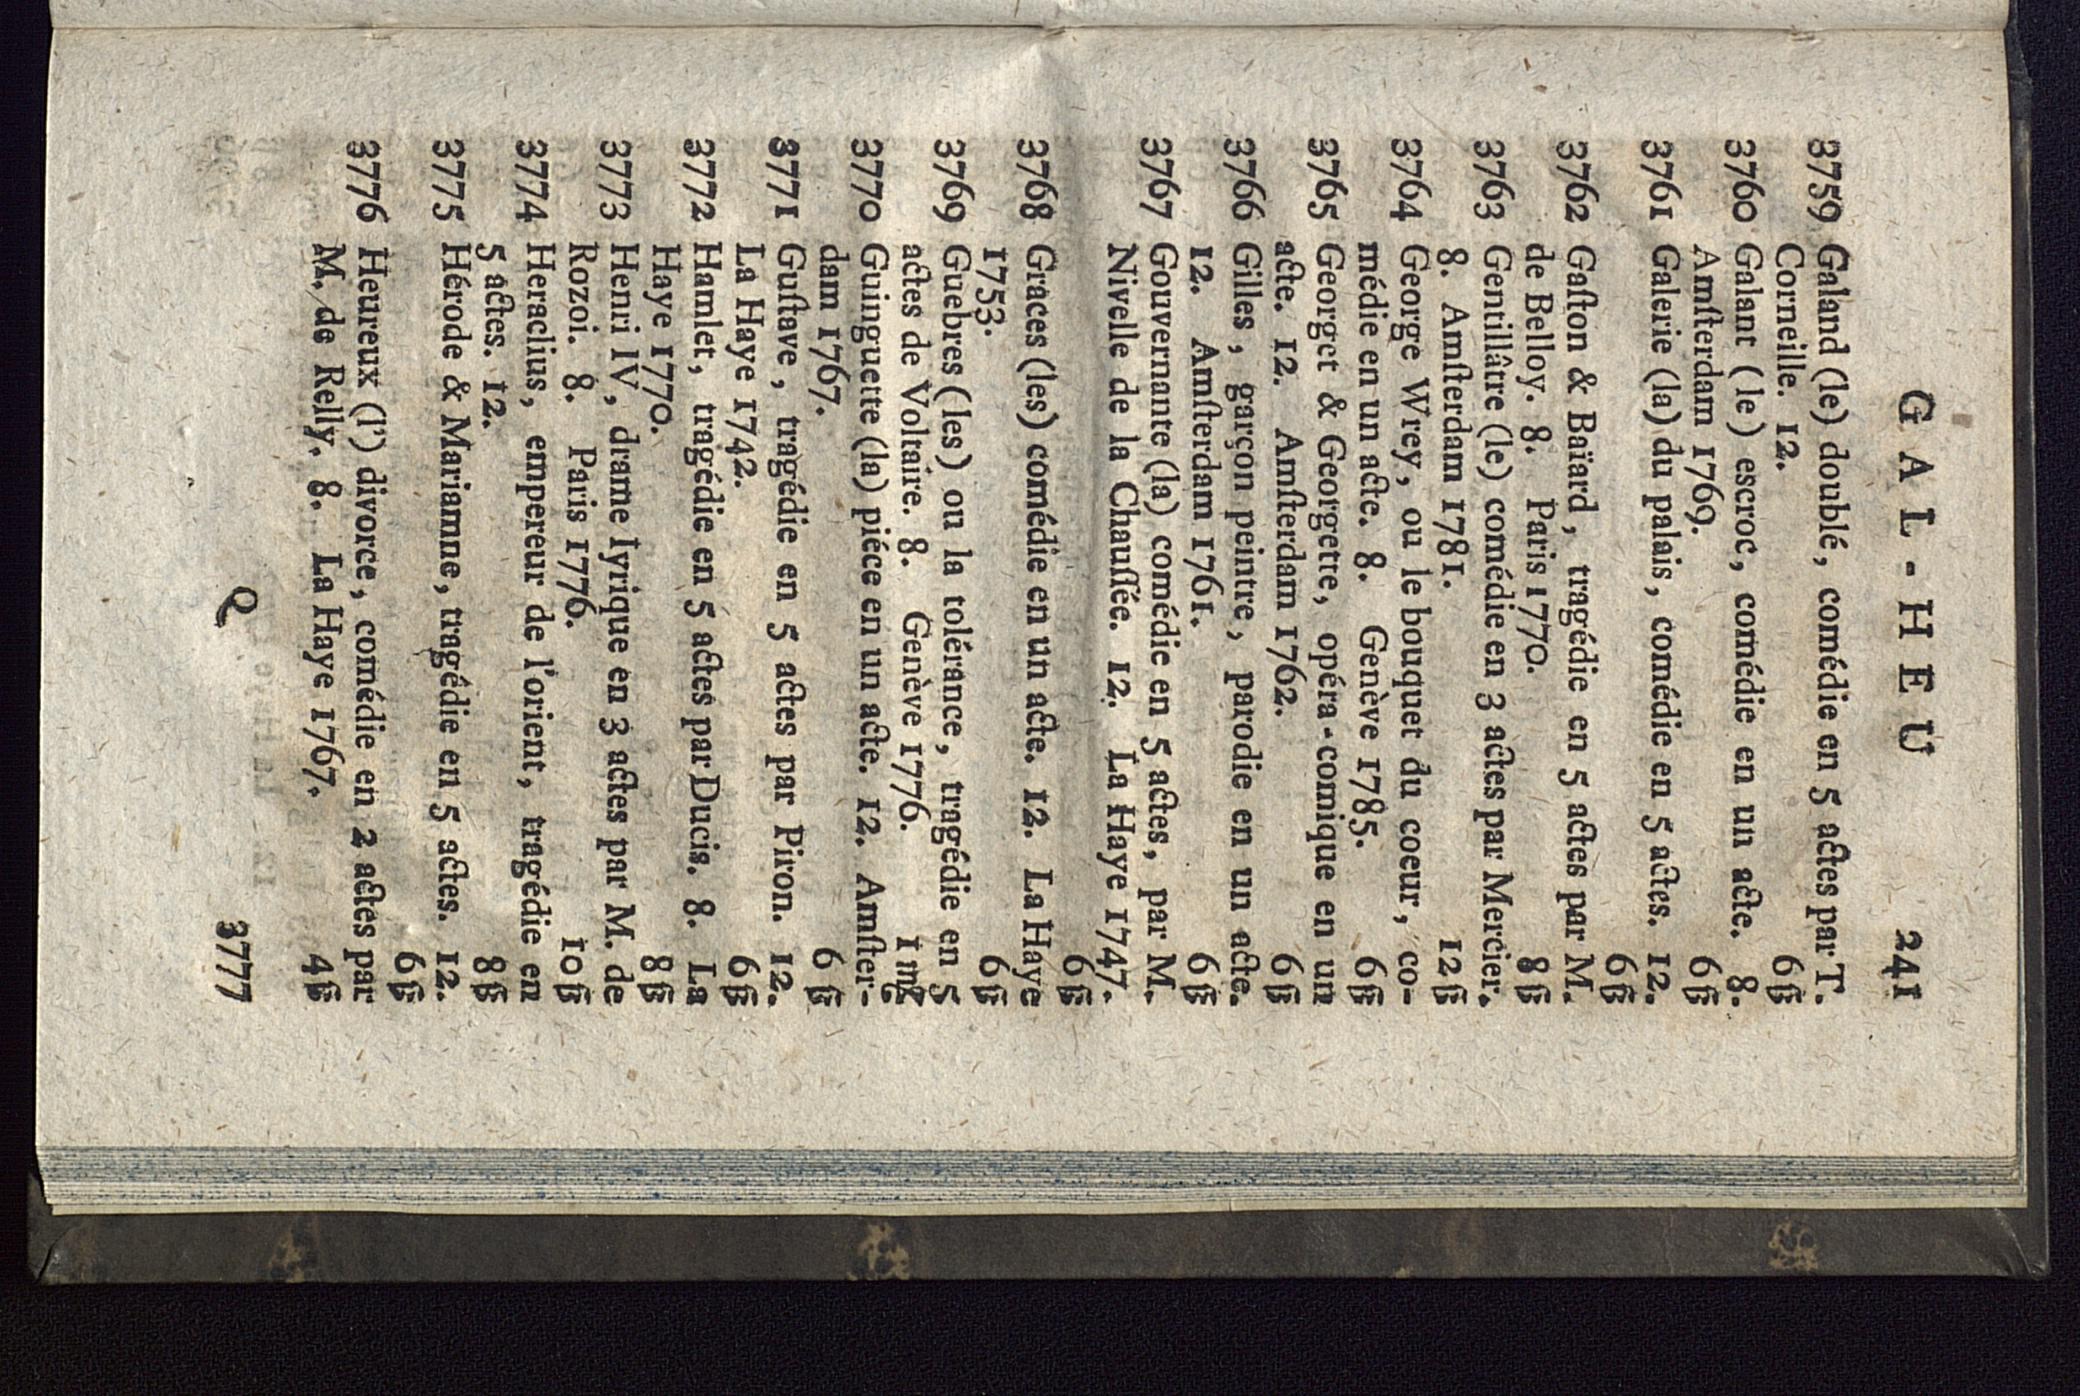 GAL-HEU 241
3759 Galand (le) doublé, comédie en 5 actes par T.
Corneille. 12. 6 ß
3760 Galant (le) escroc, comédie en un acte. 8.
Amſterdam 1769. 6 ß
3761 Galerie (la) du palais, comédie en 5 actes. 12.
6 ß
3762 Gaſton & Baïard, tragédie en 5 actes par M.
de Belloy. 8. Paris 1770. 8 ß
3763 Gentillâtre (le) comédie en 3 actes par Mercier.
8. Amſterdam 1781. 12 ß
3764 George Wrey, ou le bouquet du coeur, co-
médie en un acte. 8. Genève 1785. 6 ß
3765 Georget & Georgette, opéra-comique en un
acte. 12. Amſterdam 1762. 6 ß
3766 Gilles, garçon peintre, parodie en un acte.
12. Amſterdam 1761. 6 ß
3767 Gouvernante (la) comédie en 5 actes, par M.
Nivelle de la Chauſſée. 12. La Haye 1747.
6 ß
3768 Graces (les) comédie en un acte. 12. La Haye
1753. 6 ß
3769 Guebres (les) ou la tolérance, tragédie en 5
actes de Voltaire. 8. Genève 1776. 1 mg
3770 Guinguette (la) piéce en un acte. 12. Amſter-
dam 1767. 6 ß
3771 Guſtave, tragédie en 5 actes par Piron. 12.
La Haye 1742. 6 ß
3772 Hamlet, tragédie en 5 actes par Ducis. 8. La
Haye 1770. 8 ß
3773 Henri IV, drame lyrique en 3 actes par M. de
Rozoi. 8. Paris 1776. 10 ß
3774 Heraclius, empereur de l'orient, tragédie en
5 actes. 12. 8 ß
3775 Hérode & Mariamne, tragédie en 5 actes. 12.
6 ß
3776 Heureux (l') divorce, comédie en 2 actes par
M. de Relly. 8. La Haye 1767. 4 ß
Q 3777